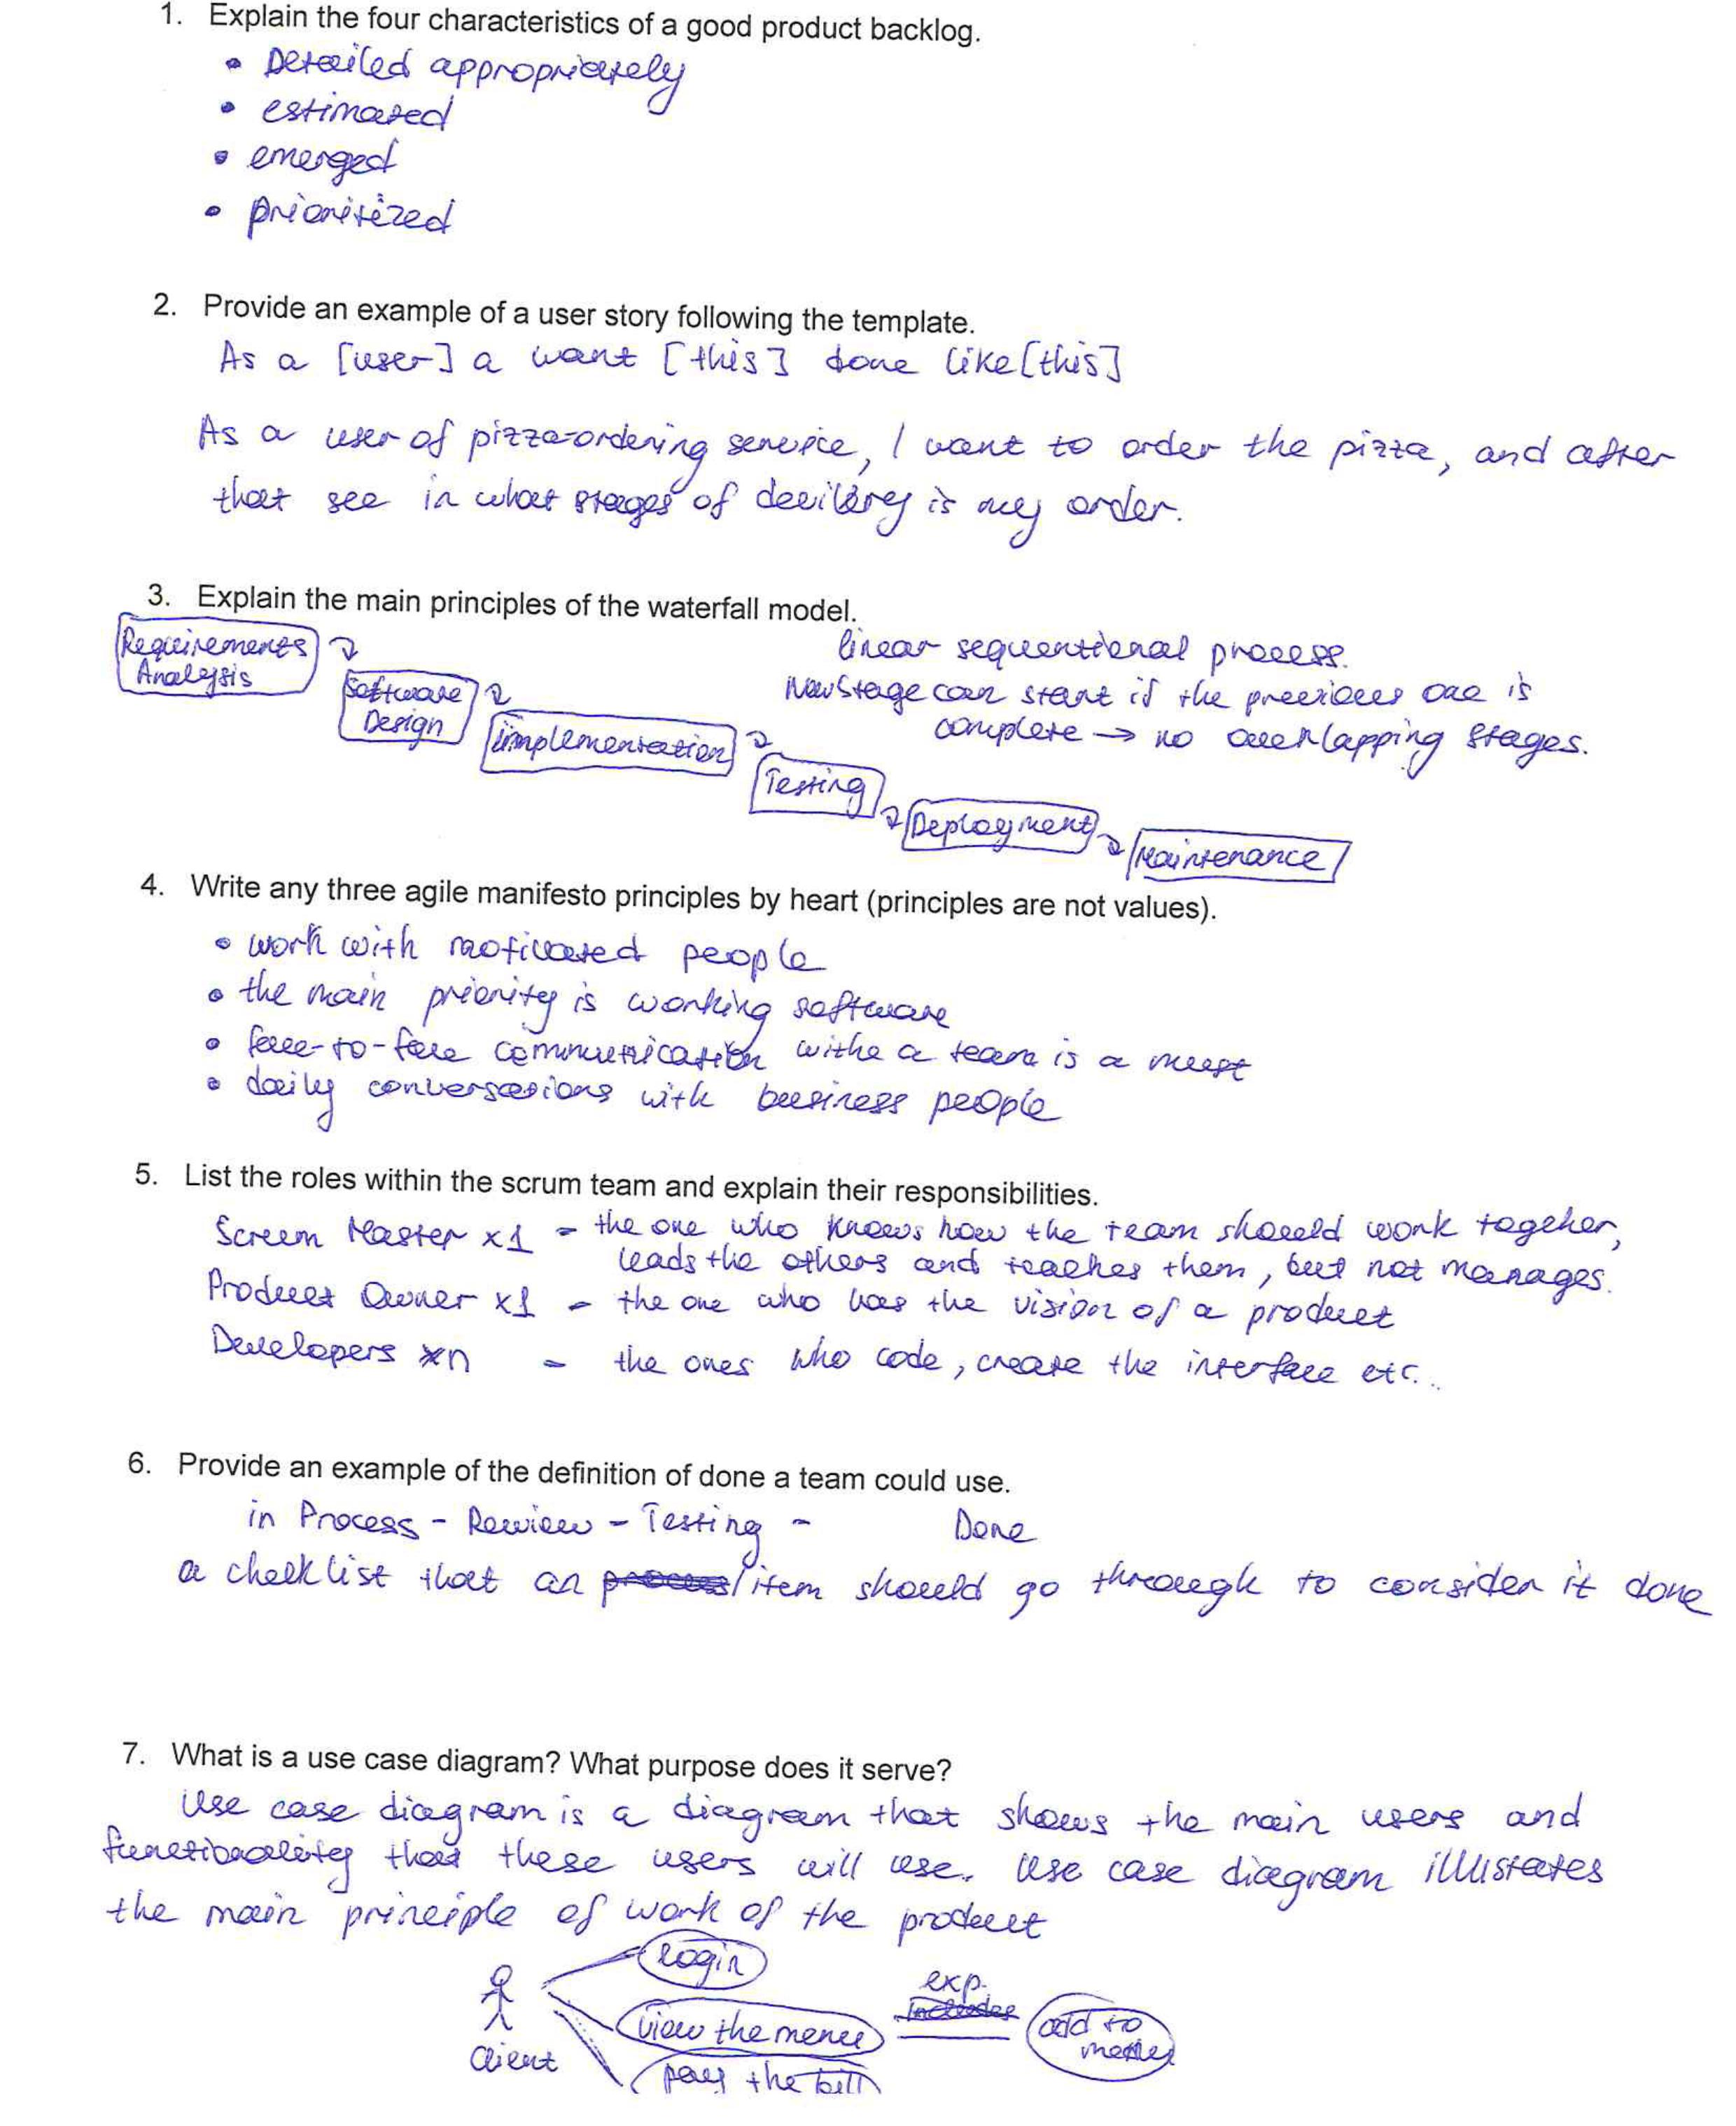 1. Explain the four characteristics of a good product backlog.
• Detailed appropriately
• estimated
• emerged
• prioritized
2. Provide an example of a user story following the template.
As a [user] a want [this] done like [this]
As a user of pizza-ordering service, I want to order the pizza, and after
that see in what stages of devilery is my order.
3. Explain the main principles of the waterfall model.
Requirements
Analysis
Software
Design
implementation
Testing
Deployment
Maintenance
linear sequentional process.
New stage can start if the previous one is
complete → no overlapping stages.
4. Write any three agile manifesto principles by heart (principles are not values).
• work with motivated people
• the main priority is working software
• face-to-face communication withe a team is a must
• daily conversations with business people
5. List the roles within the scrum team and explain their responsibilities.
Screm Master x1 - the one who knows how the team should work togeher,
leads the others and teaches them, but not manages.
Product Owner x1 - the one who has the vision of a product
Developers xn - the ones who code, create the interface etc..
6. Provide an example of the definition of done a team could use.
in Process - Rewiew - Testing - Done
a checklist that an process item should go through to consider it done
7. What is a use case diagram? What purpose does it serve?
Use case diagram is a diagram that shows the main users and
functionality that these users will use. Use case diagram illustates
the main principle of work of the product
login
exp.
includes
view the menu
add to
client
pay the bill